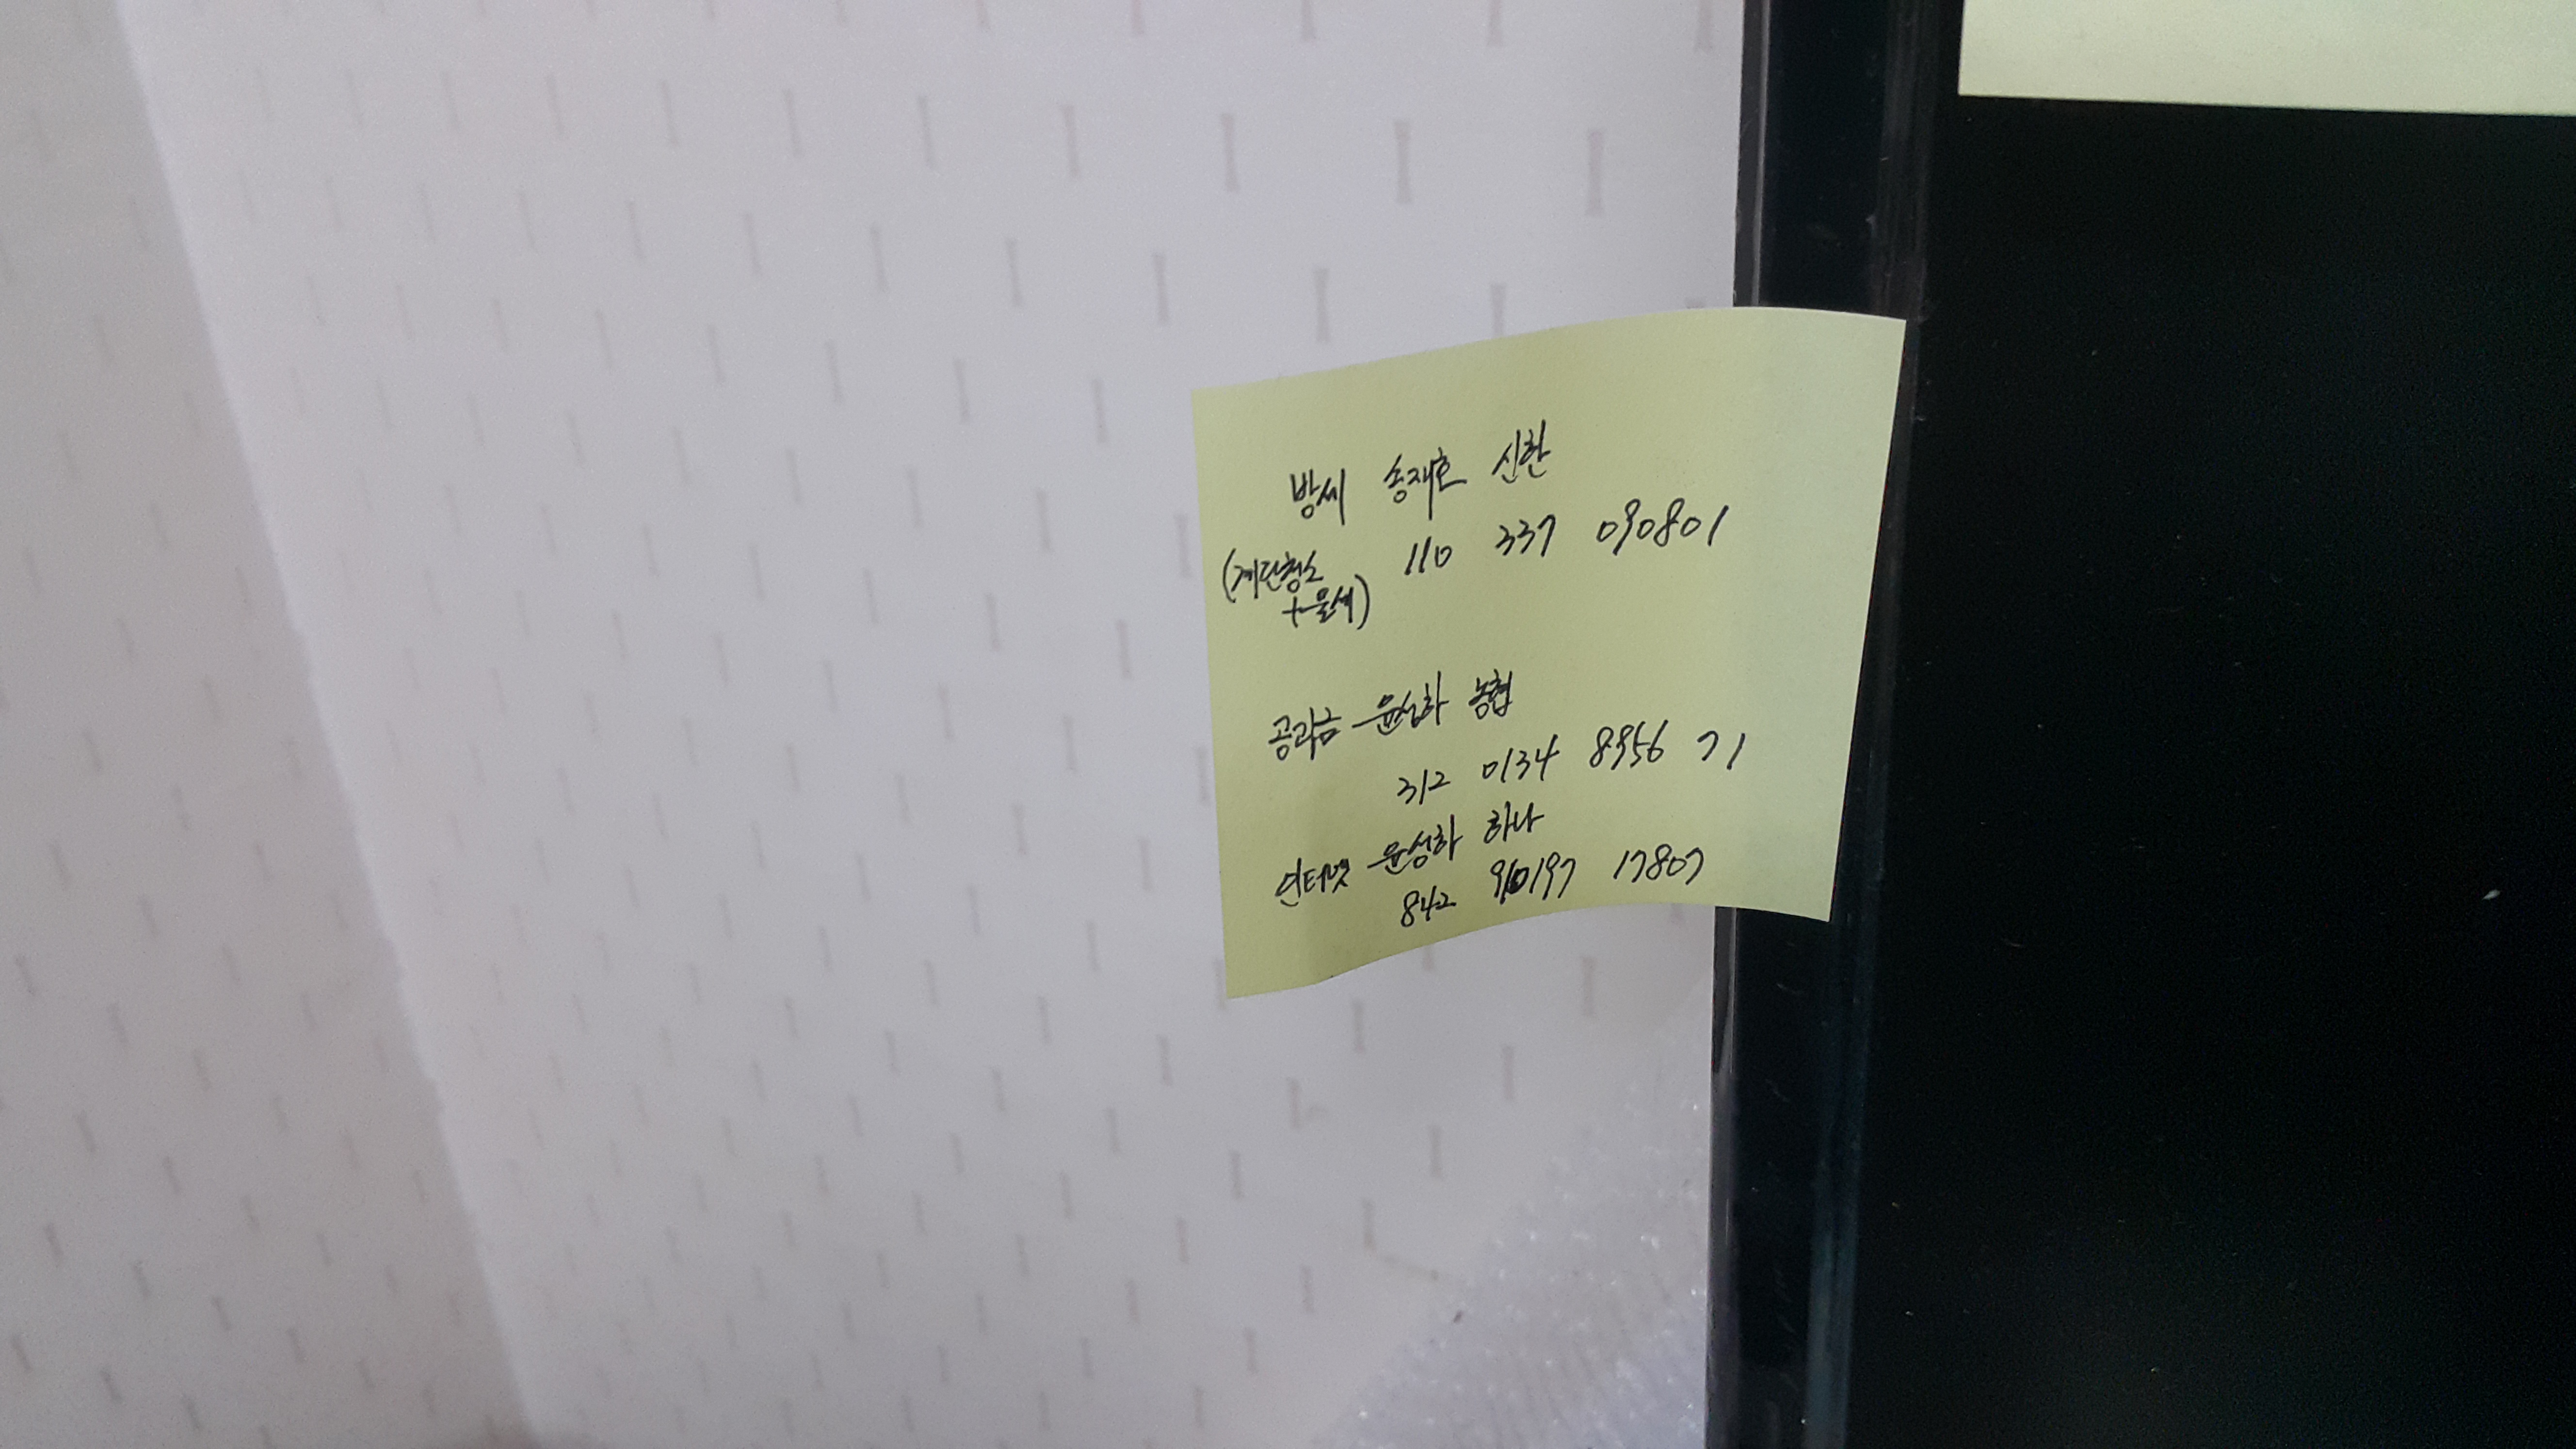 방세 송재호 신한
(계단청소 110 337 090801
+물세)
공과금 윤성하 농협
312 0134 8956 71
인터넷 윤성하 하나
842 910197 17807